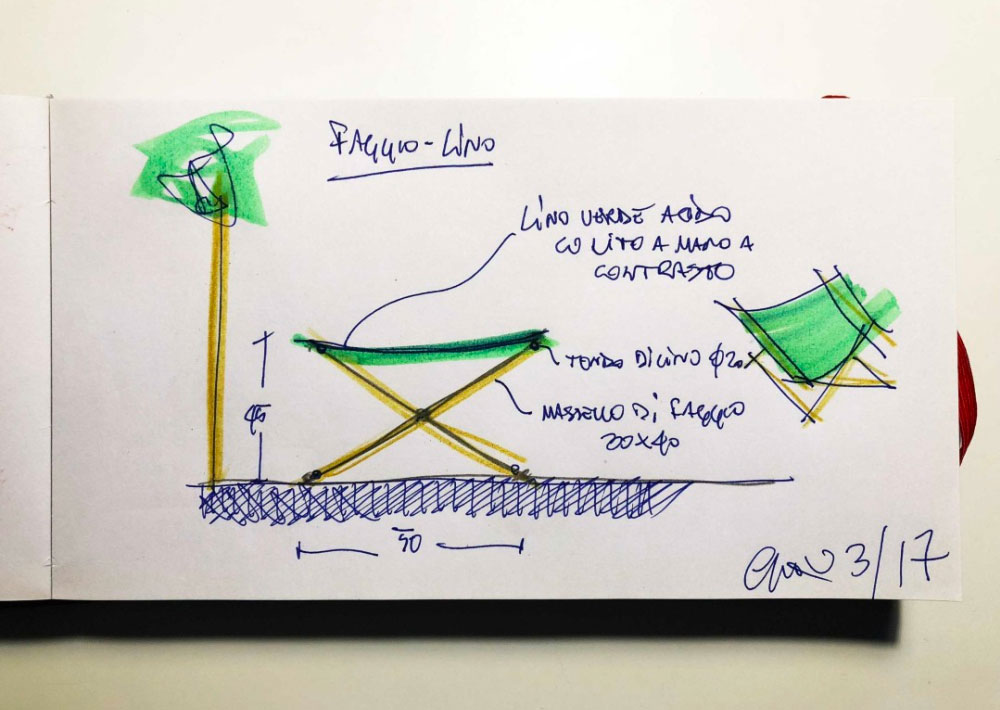 FAGGIO-LINO
LINO VERDE ACIDO
CUCITO A MANO A
CONTRASTO
TONDO DI LINO φ20
MASSELLO DI FAGGIO
20X40
45
50
3/17